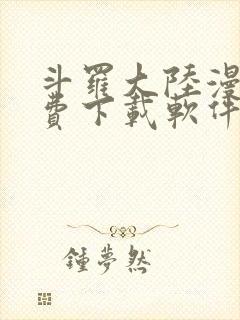 斗羅大陸漫
費下載軟件
鍾夢然